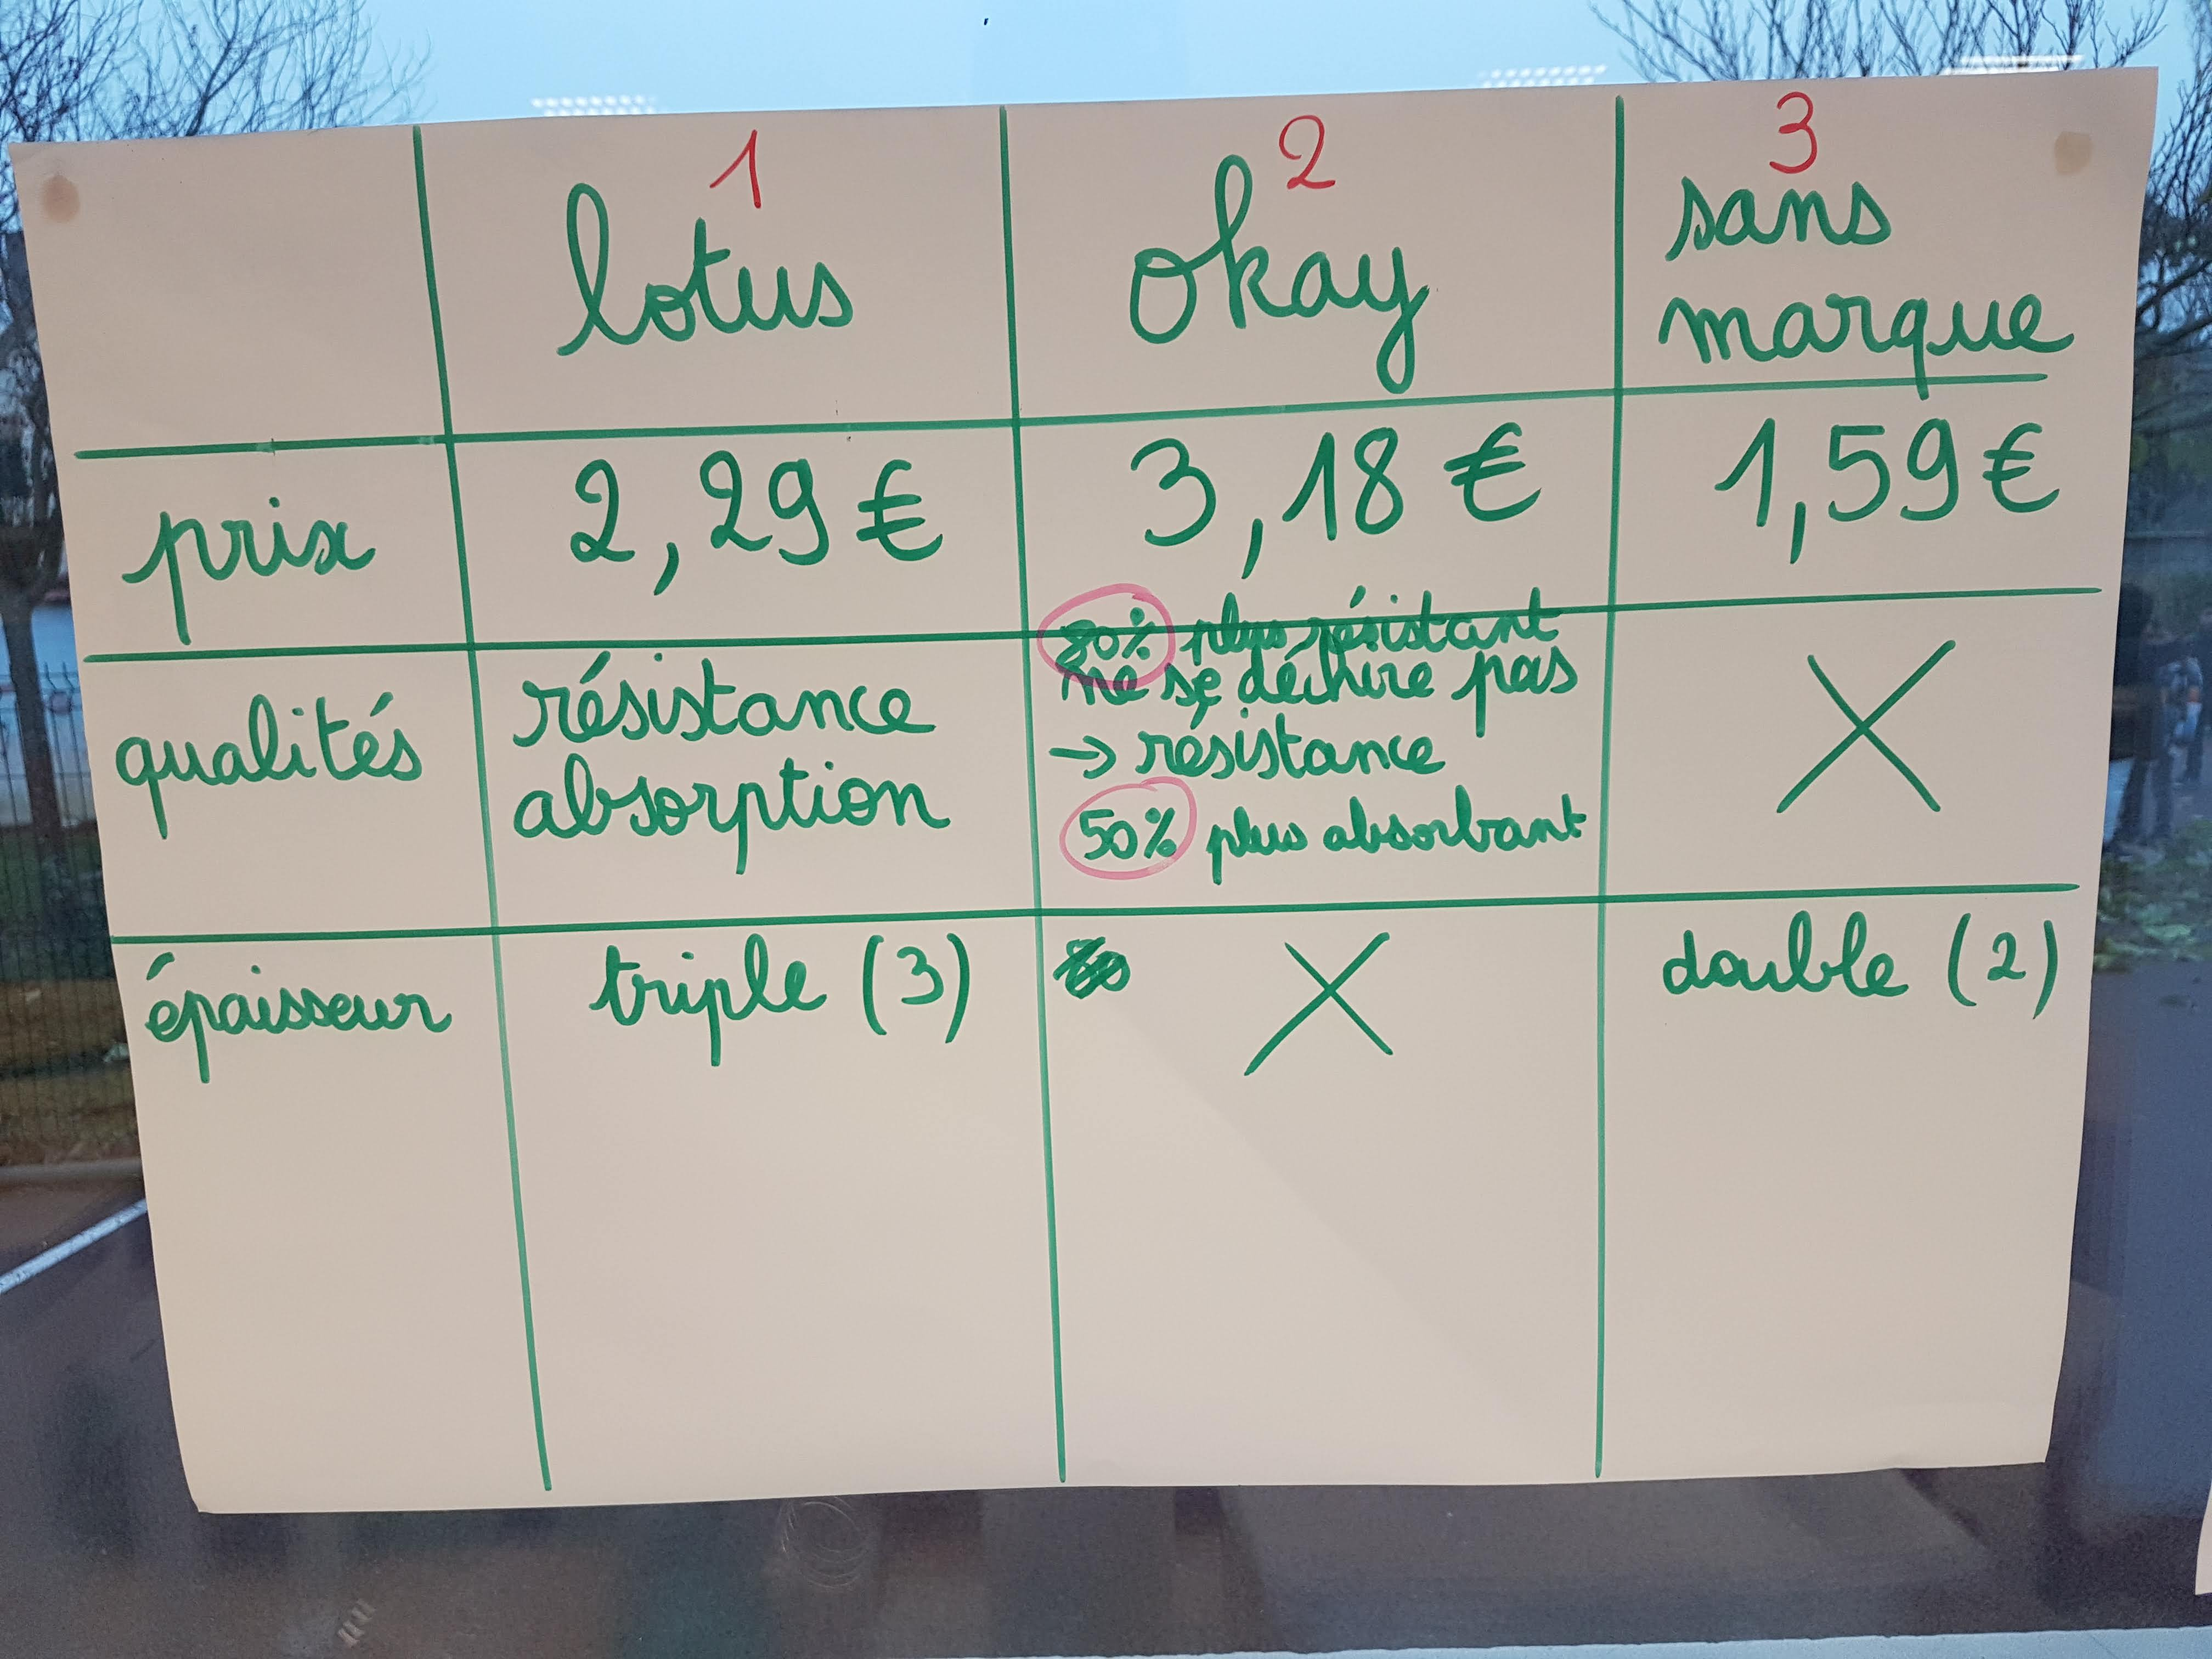 1 2 3
lotus okay sans
marque
prix 2,29€ 3,18€ 1,59€
qualités résistance absorption
80% plus résistant
ne se déchire pas
→ résistance
50% plus absorbant
X
épaisseur triple (3) X double (2)